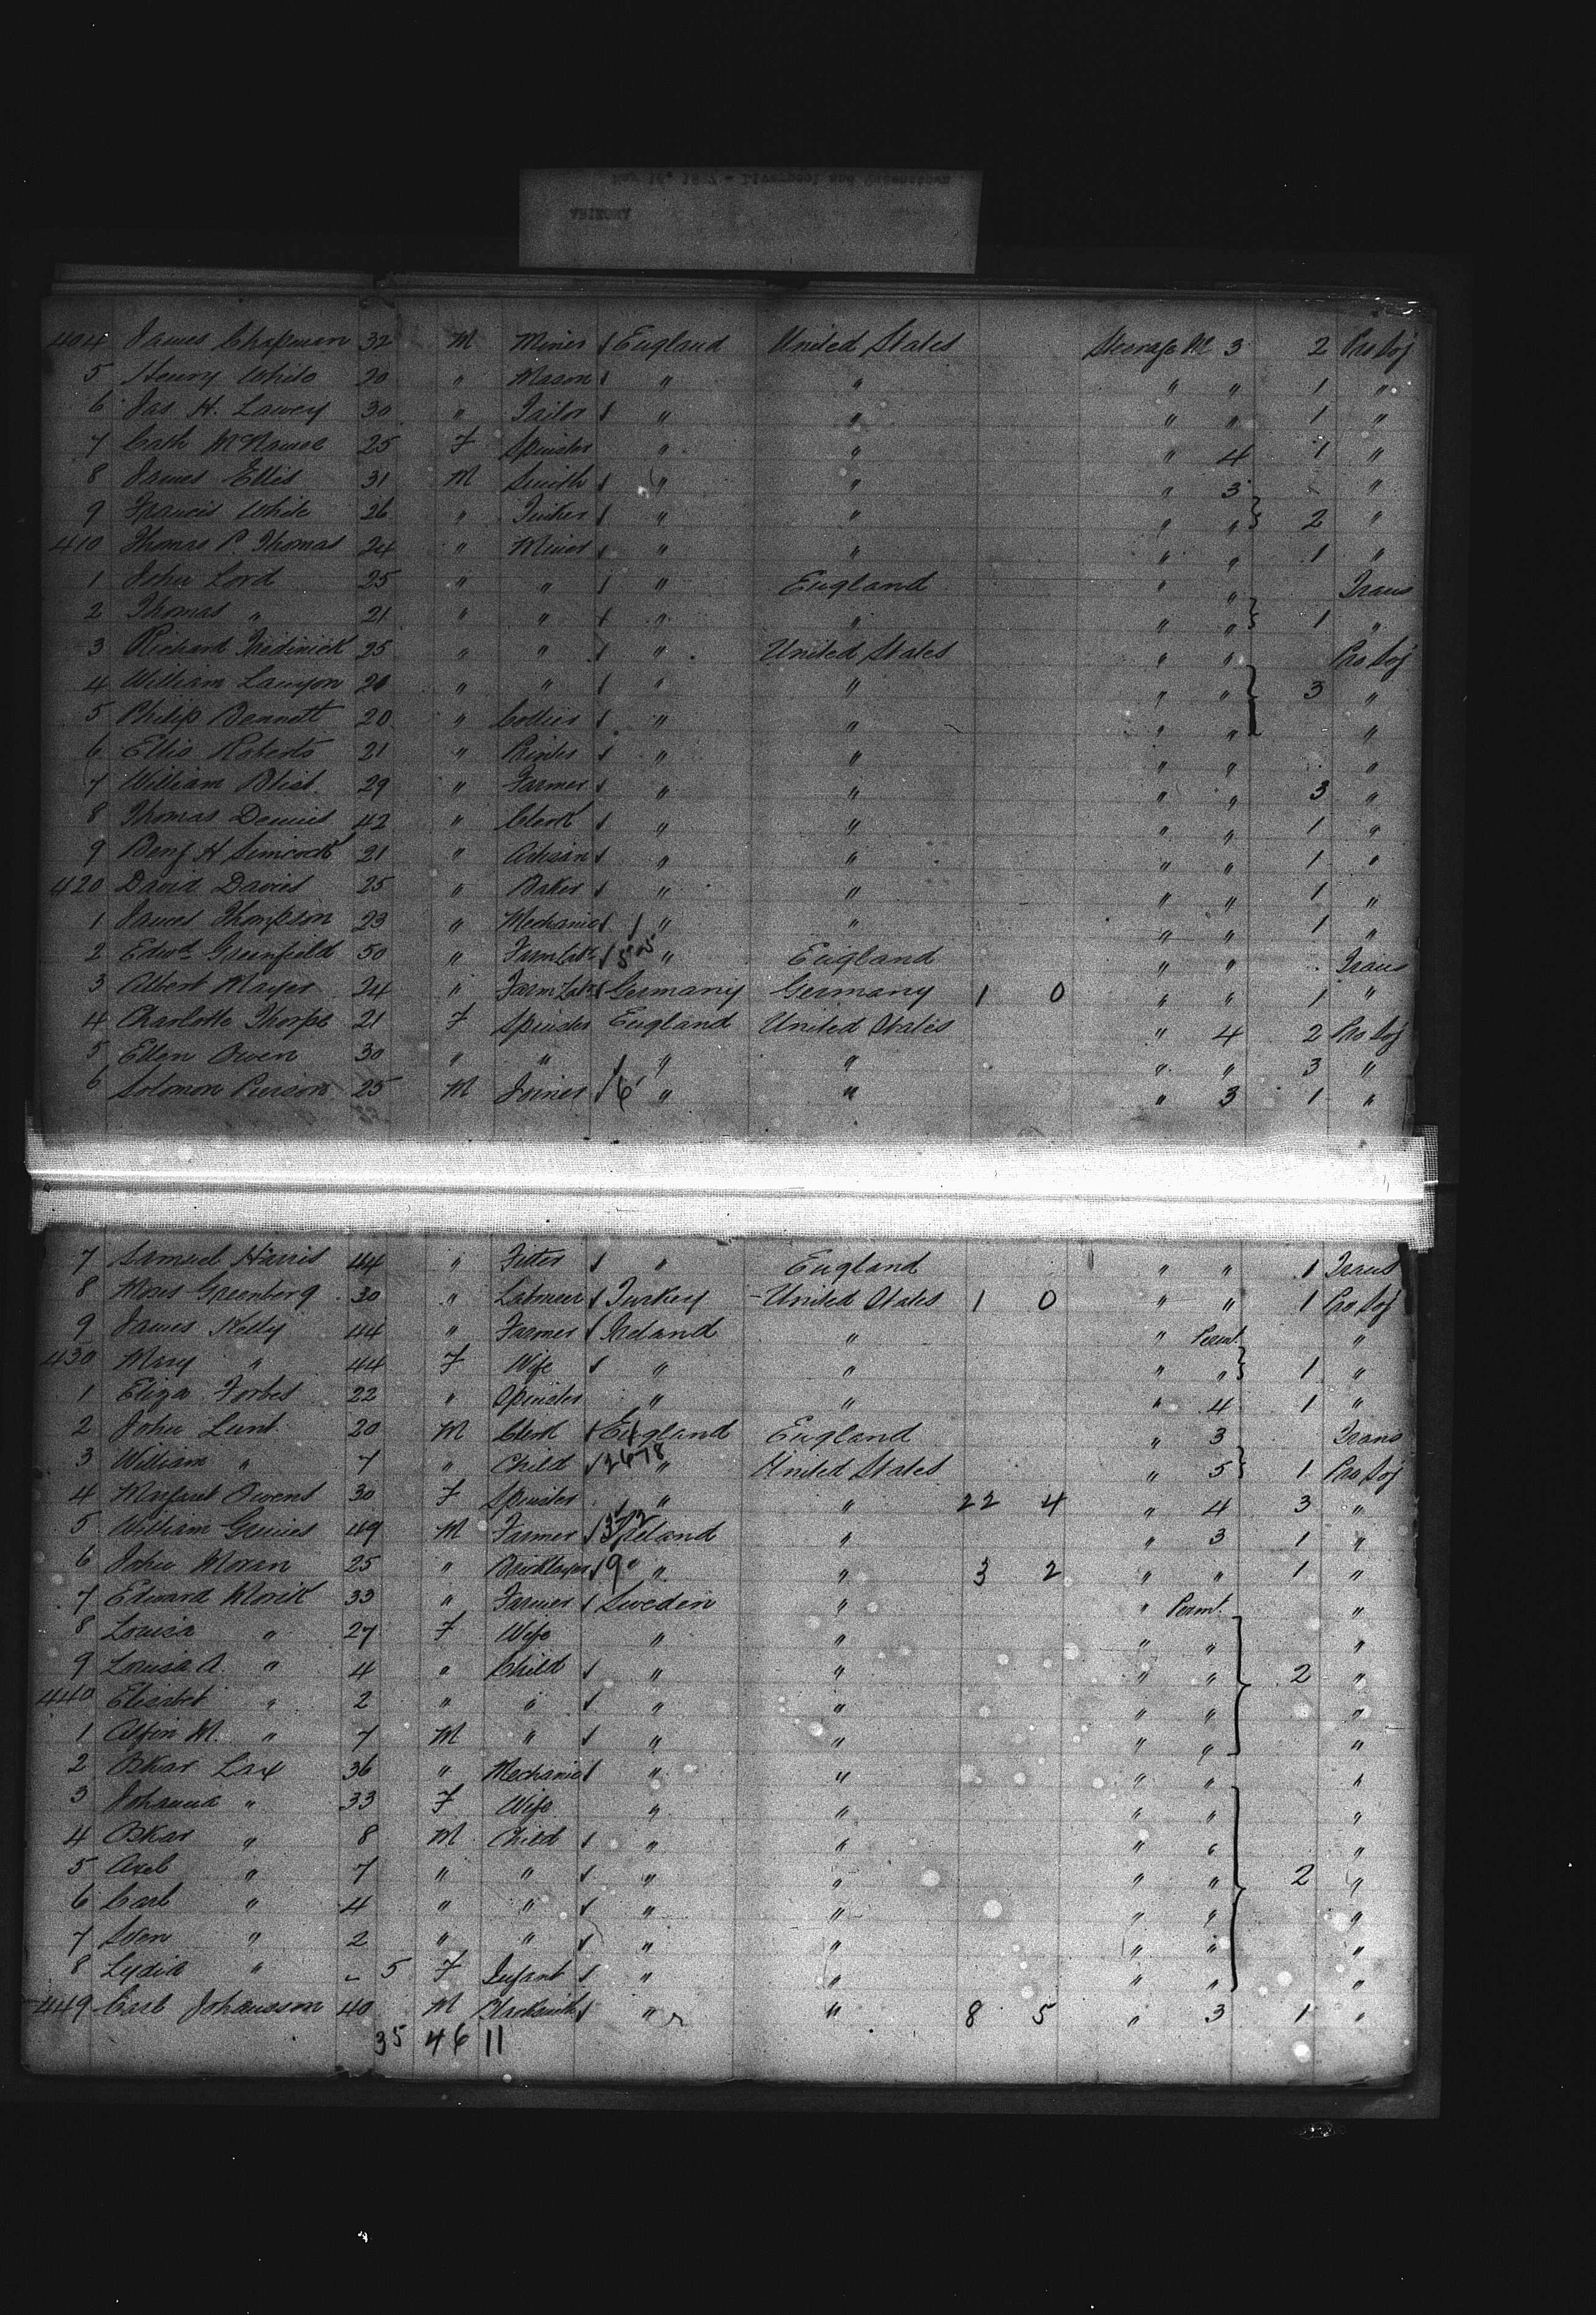 404 James Chapman 32 M Miner England United States Steerage No 3 2 Pro Soj
5 Henry White 20 " Mason " " " " 1 "
6 Jas. H. Lawey 30 " Tailor " " " " 1 "
7 Cath 25 F Spinster " " " 4 1 "
8 James Ellis 31 M Smith " " " 3 "
9 Francis White 26 " " " " " 2 "
410 Thomas P. Thomas 24 " Miner " " " " 1 "
1 John Lord 25 " " " England " " Trans
2 Thomas " 21 " " " " " " 1 "
3 Richard 25 " " " United States " " Pro Soj
4 William Lanyon 20 " " " " " " 3 "
5 Philip Bennett 20 " Collier " " " " "
6 Ellis Roberts 21 " " " " " "
7 William 29 " Farmer " " " " 3 "
8 Thomas 42 " Clerk " " " " 1 "
9 Benj H Simcock 21 " Artisan " " " " 1 "
420 David Davies 25 " Baker " " " " 1 "
1 James Thompson 23 " Mechanic " " " " 1 "
2 Edwd Greenfield 50 " Farm Labr " England " " Trans
3 Albert Mayer 24 " Farm Labr Germany Germany 1 0 " " 1 "
4 Charlotte Thorpe 21 F Spinster England United States " 4 2 Pro Soj
5 Ellen Owen 30 " " " " " " 3 "
6 Solomon Pierson 25 M Joiner 6 " " " 3 1 "
7 Samuel Harris 44 " Fitter " England " " 1 Trans
8 Greenberg 30 " Labourer Turkey United States 1 0 " " 1 Pro Soj
9 James Kelly 44 " Farmer Ireland " " Permt "
430 Mary " 44 F Wife " " " " 1 "
1 Eliza Forbes 22 " Spinster " " " 4 1 "
2 John Lunt 20 M Clerk England England " 3 Trans
3 William " 7 " Child " United States " 5 1 Pro Soj
4 Margaret Owens 30 F Spinster " " 22 4 " 4 3 "
5 William 49 M Farmer Ireland " " 3 1 "
6 John Moran 25 " Bricklayer 9 " " 3 2 " " 1 "
7 Edward 33 " Farmer Sweden " " Permt. "
8 Louisa " 27 F Wife " " " " "
9 Louisa A. " 4 " Child " " " " 2 "
440 Elisabet " 2 " " " " " " "
1 M. " 7 M " " " " " "
2 Oskar Lax 36 " Mechanic " " " " "
3 Johanna " 33 F Wife " " " " "
4 Oskar " 8 M Child " " " " "
5 Axel " 7 " " " " " " 2 "
6 Carl " 4 " " " " " " "
7 Sven " 2 " " " " " " "
8 Lydia " 5 F Infant " " " " "
449 Carl Johansson 40 M Blacksmith " " 8 5 " 3 1 "
35 46 11